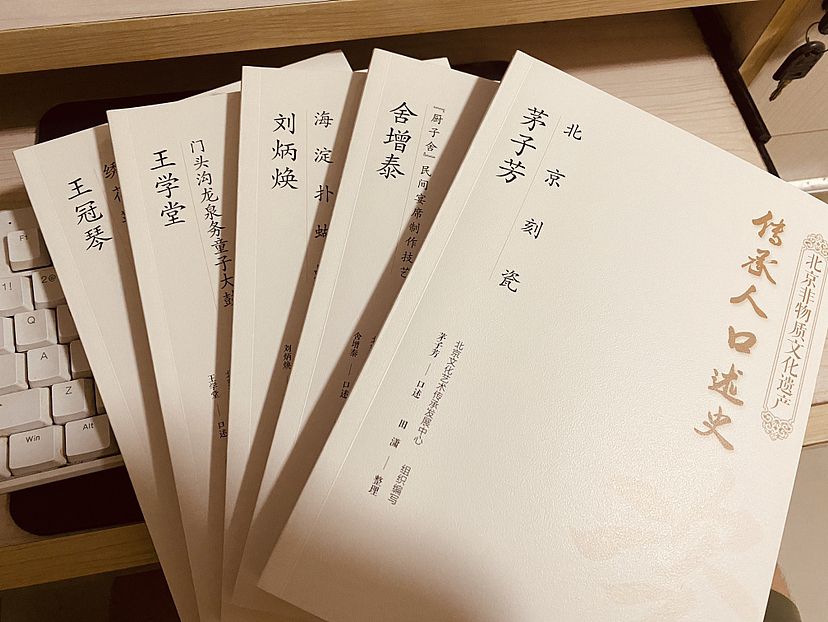 北京非物质文化遗产
传承人口述史
北京刻瓷
茅子芳
北京文化艺术传承发展中心 组织编写
茅子芳——口述 田潇——整理
『厨子舍』民间宴席制作技艺
舍增泰
舍增泰——口述
海淀扑蝴
刘炳焕
刘炳焕
门头沟龙泉务童子大鼓
王学堂
王学堂——口述
绣花
王冠琴
F1
1!
2@
Q
A
Z
Win
Alt